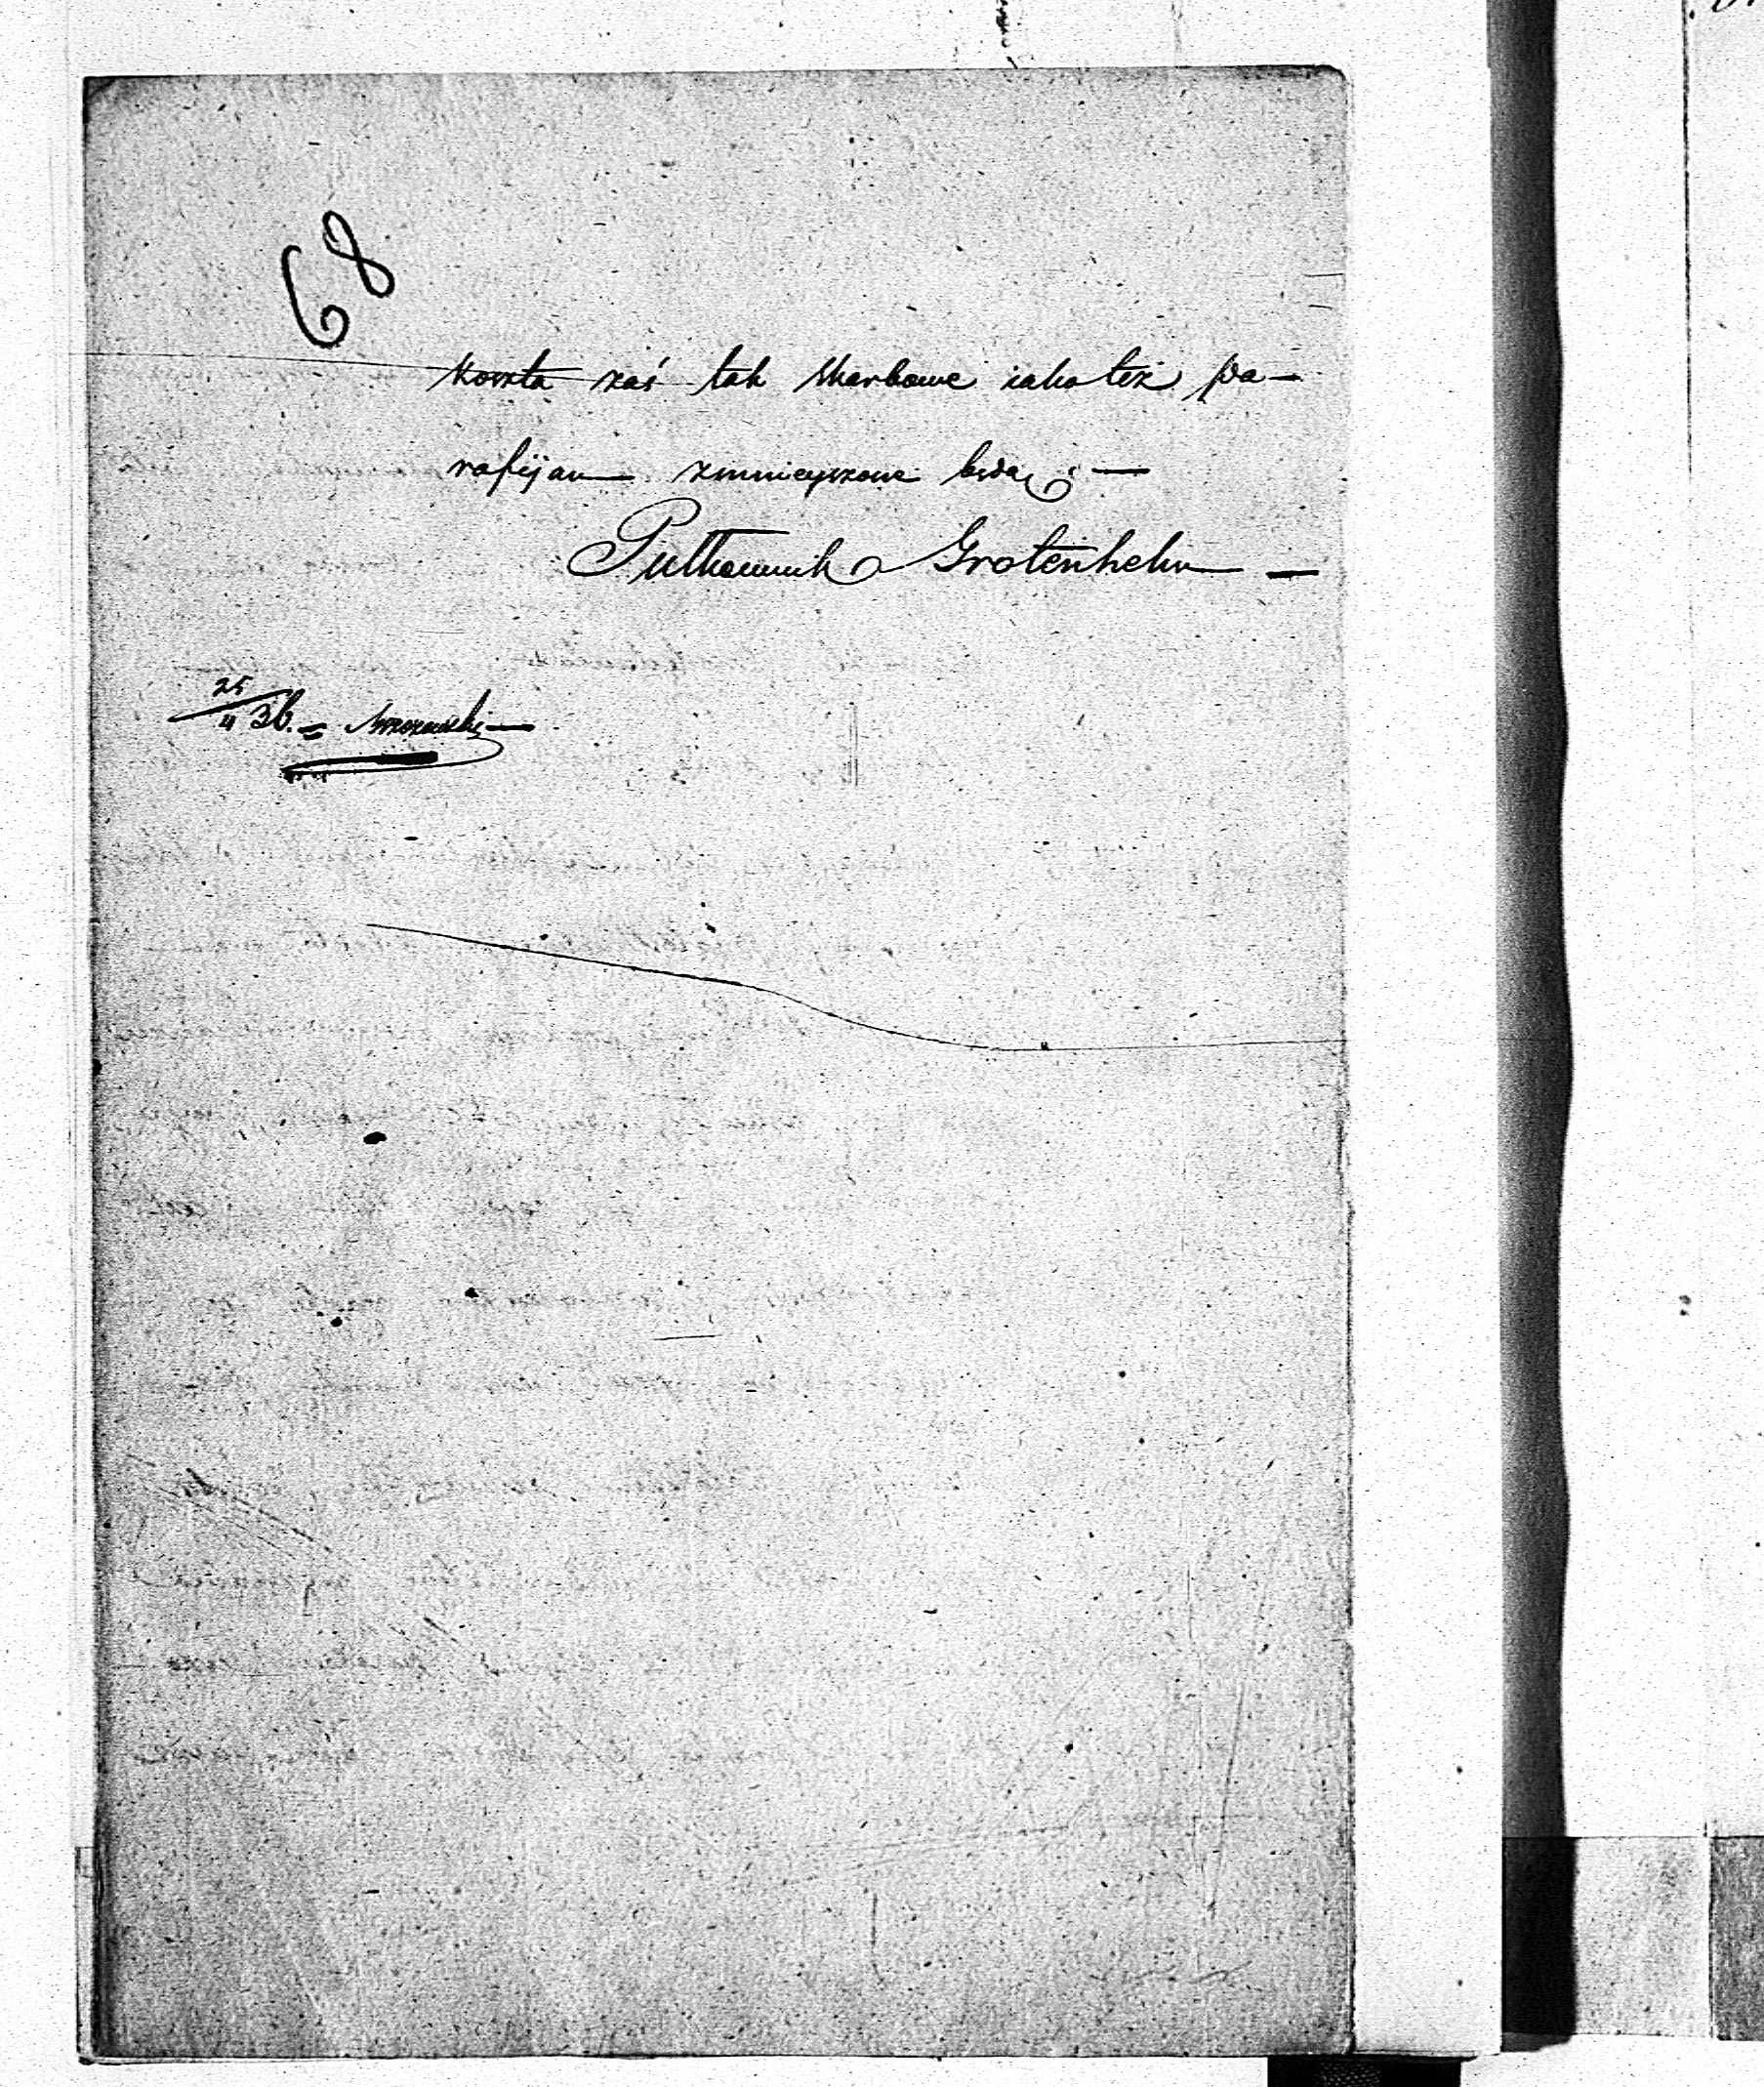 68
Koszta zaś tak skarbowe iako też pa-
rafijan zmnieyszone będą. —
Pułkownik Grotenhelm —
25/4 36.